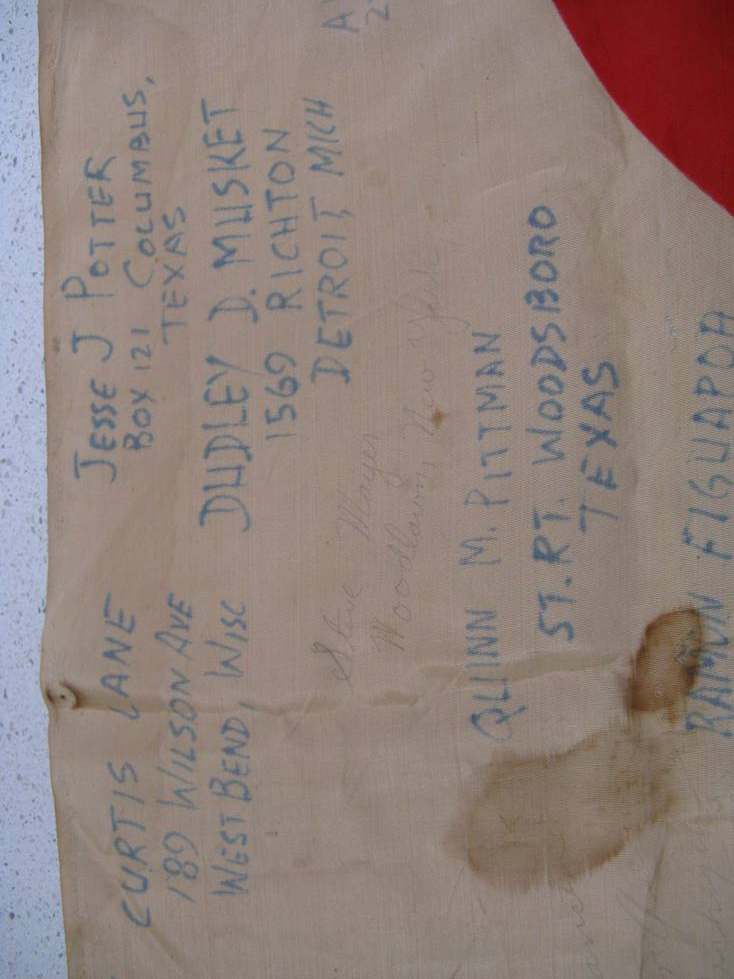 CURTIS LANE
189 WILSON AVE
WEST BEND, WISC
JESSE J POTTER
BOX 121 COLUMBUS,
TEXAS
DUDLEY D. MUSKET
1569 RICHTON
DETROIT, MICH
Steve Mayer
Woodlawn, New York
QUINN M. PITTMAN
ST. RT. WOODSBORO
TEXAS
RAMON FIGUAROA